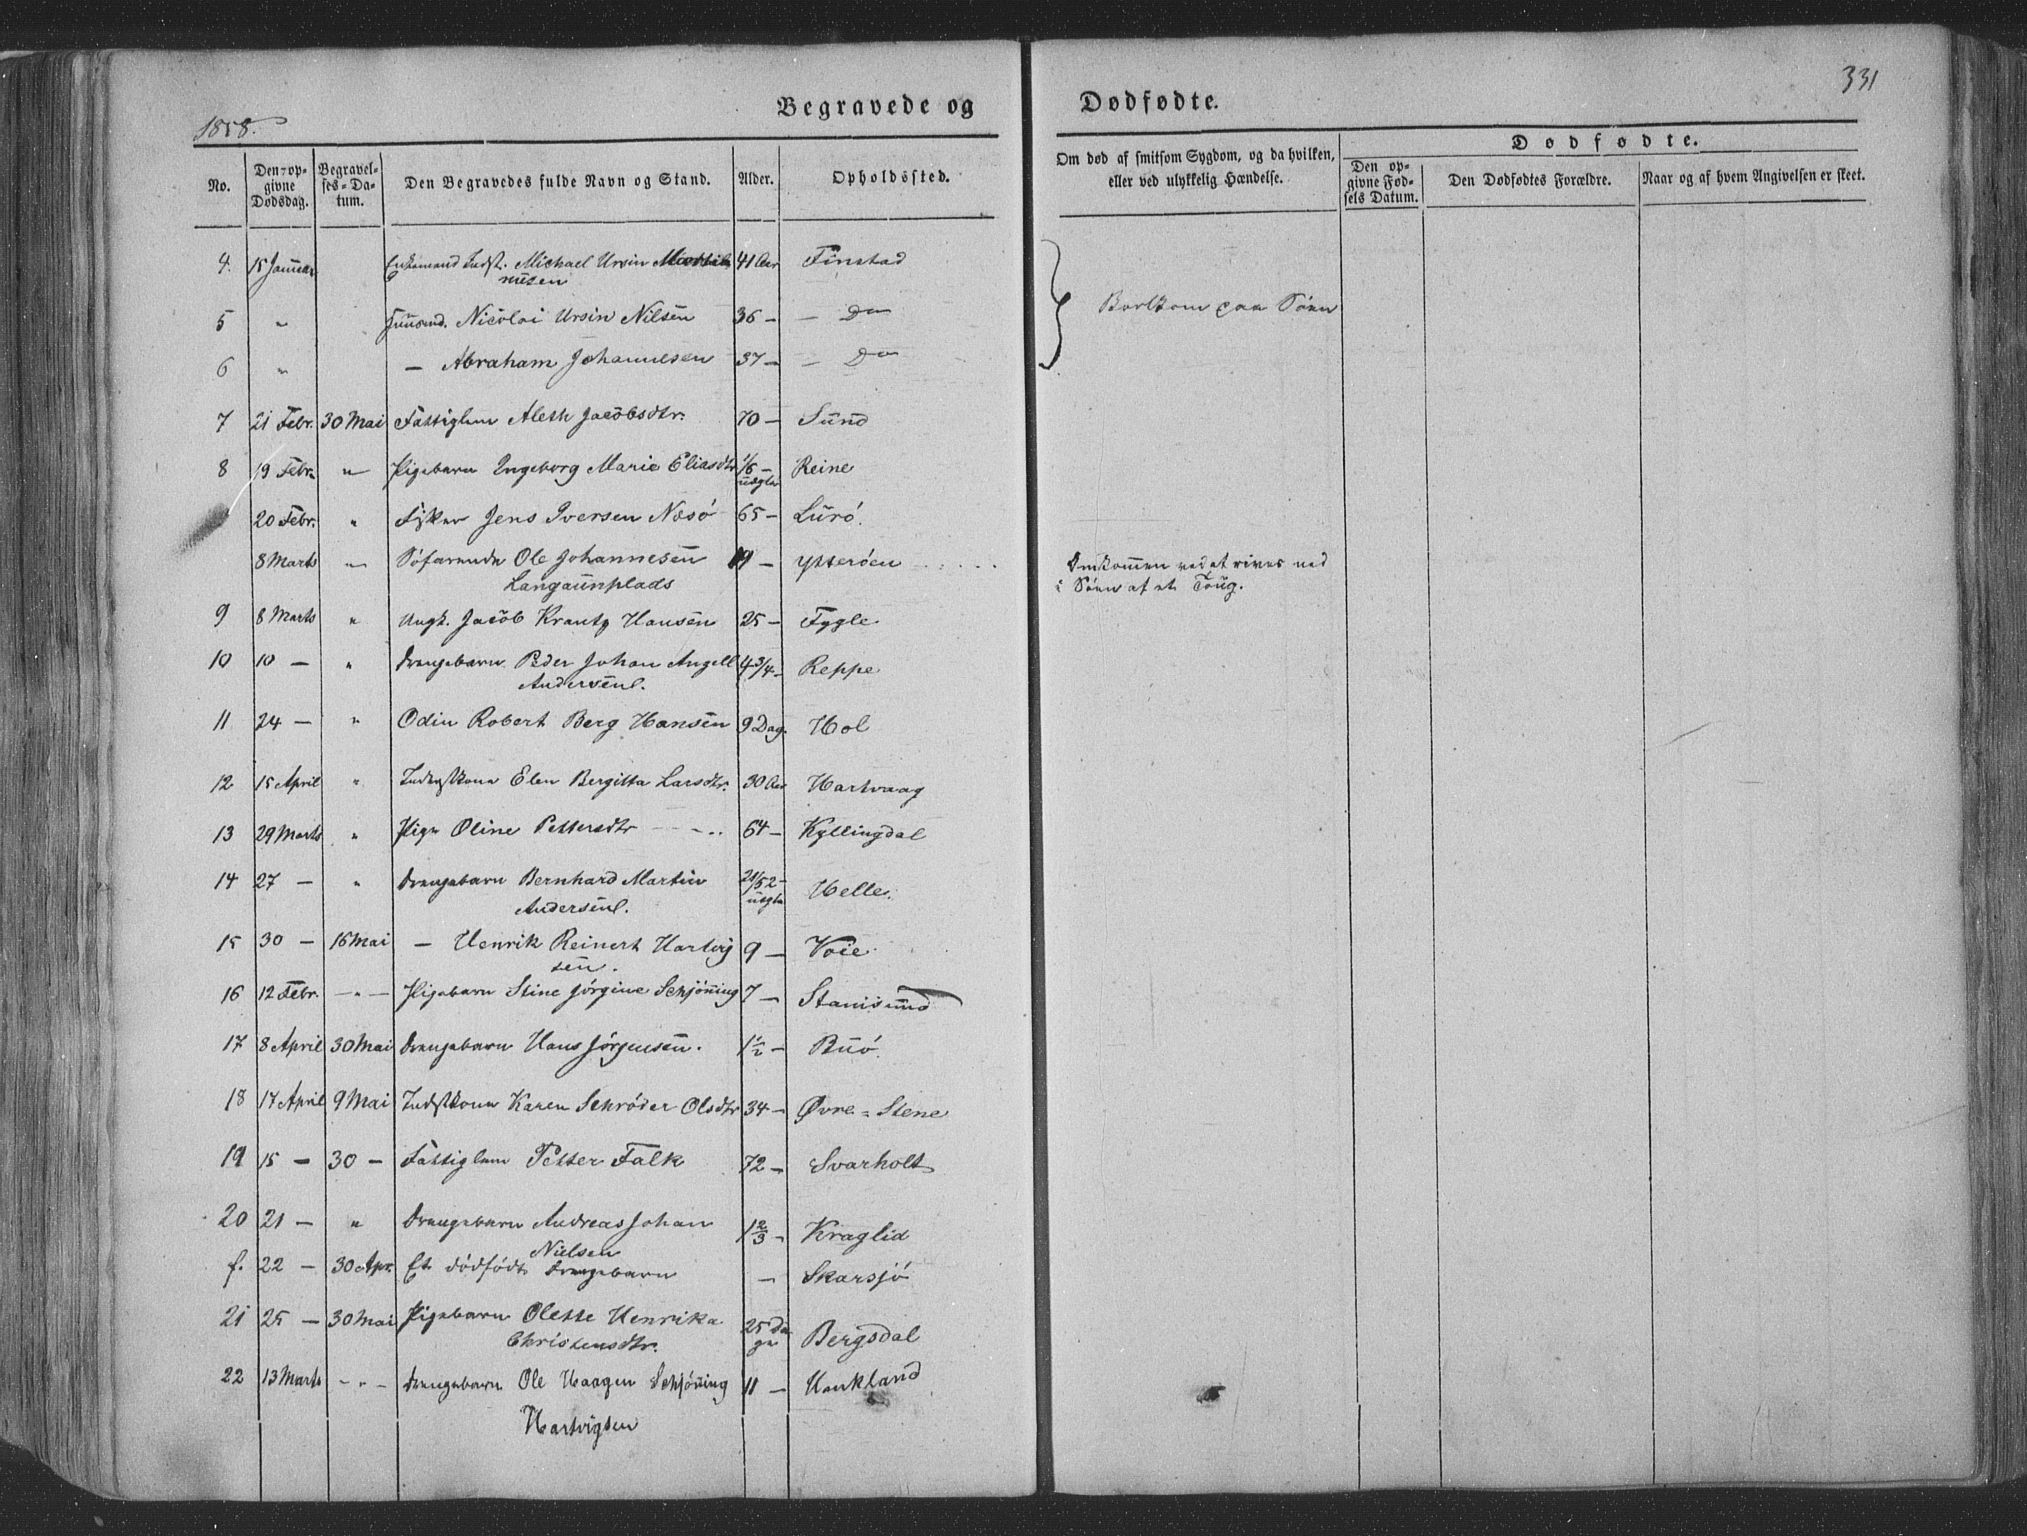 331
Begravede og Dødfødte.
1858.
No. Den opgivne Dødsdag. Begravelses-Datum. Den Begravedes fulde Navn og Stand. Alder. Opholdssted. Om død af smitsom Sygdom, og da hvilken, eller ved ulykkelig Hændelse.
Dødfødte.
Den opgivne Fødsels Datum. Den Dødfødtes Forældre. Naar og af hvem Angivelsen er skeet.
4. 15 Januar Enkemand Indst. Michael Ursin 41 Aar Finstad
nusen
5 " Huusmd. Nicolai Ursin Nilsen 36 — — Do Bortkom paa Søen
6 " — Abraham Johannesen 37 — — Do
7 21 Febr. 30 Mai Fattiglem Aleth Jacobsdtr. 70 — Sund
8 19 Febr. " Pigebarn Ingeborg Marie Eliasdtr 1/6 — Reine
uægte
20 Febr. " Fisker Jens Iversen Næsø 65 — Lurö.
8 Marts " Søfarende Ole Johannesen 19 — Ytterøen Omkommen ved at rives ned
Langaunplads i Søen af et Toug.
9 8 Marts " Ungk. Jacob Krantz Hansen 25 — Fygle
10 10 — " Drengebarn Peder Johan Angell 4 3/4 - Reppe
Andersen.
11 24 — " Odin Robert Berg Hansen 9 Dag. Hol
12 15 April " Inderstkone Elen Bergitta Larsdtr. 30 Aar Hartvaag
13 29 Marts " Pige Oline Pettersdtr 64 — Kyllingdal
14 27 — " Drengebarn Bernhard Martin 21/52 - Helle.
Andersen. uægte
15 30 — 16 Mai — Henrik Reinert Hartvig 9 — Voie
sen.
16 12 Febr. — " — Pigebarn Stine Jørgine Schjøning 7 — Stamsund
17 8 April 30 Mai Drengebarn Hans Jørgensen. 1½ — Buø.
18 17 April 9 Mai Indstkone Karen Schrøder Olsdtr 34 — Øvre-Stene
19 15 — 30 — Fattiglem Petter Falk 72 — Svarholt
20 21 — " Drengebarn Andreas Johan 1⅔ - Kraglid
Nielsen
f. 22 — 30 Apr. Et dødfødt Drengebarn — Skarsjö
21 25 — 30 Mai Pigebarn Olette Henrika 25 Da Bergsdal
Christensdtr. ge
22 13 Marts - " - Drengebarn Ole Haagen Schjøning 11 — Haukland
Hartvigsen